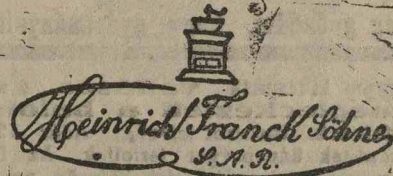 Heinrich Franck Söhne
S.A.R.